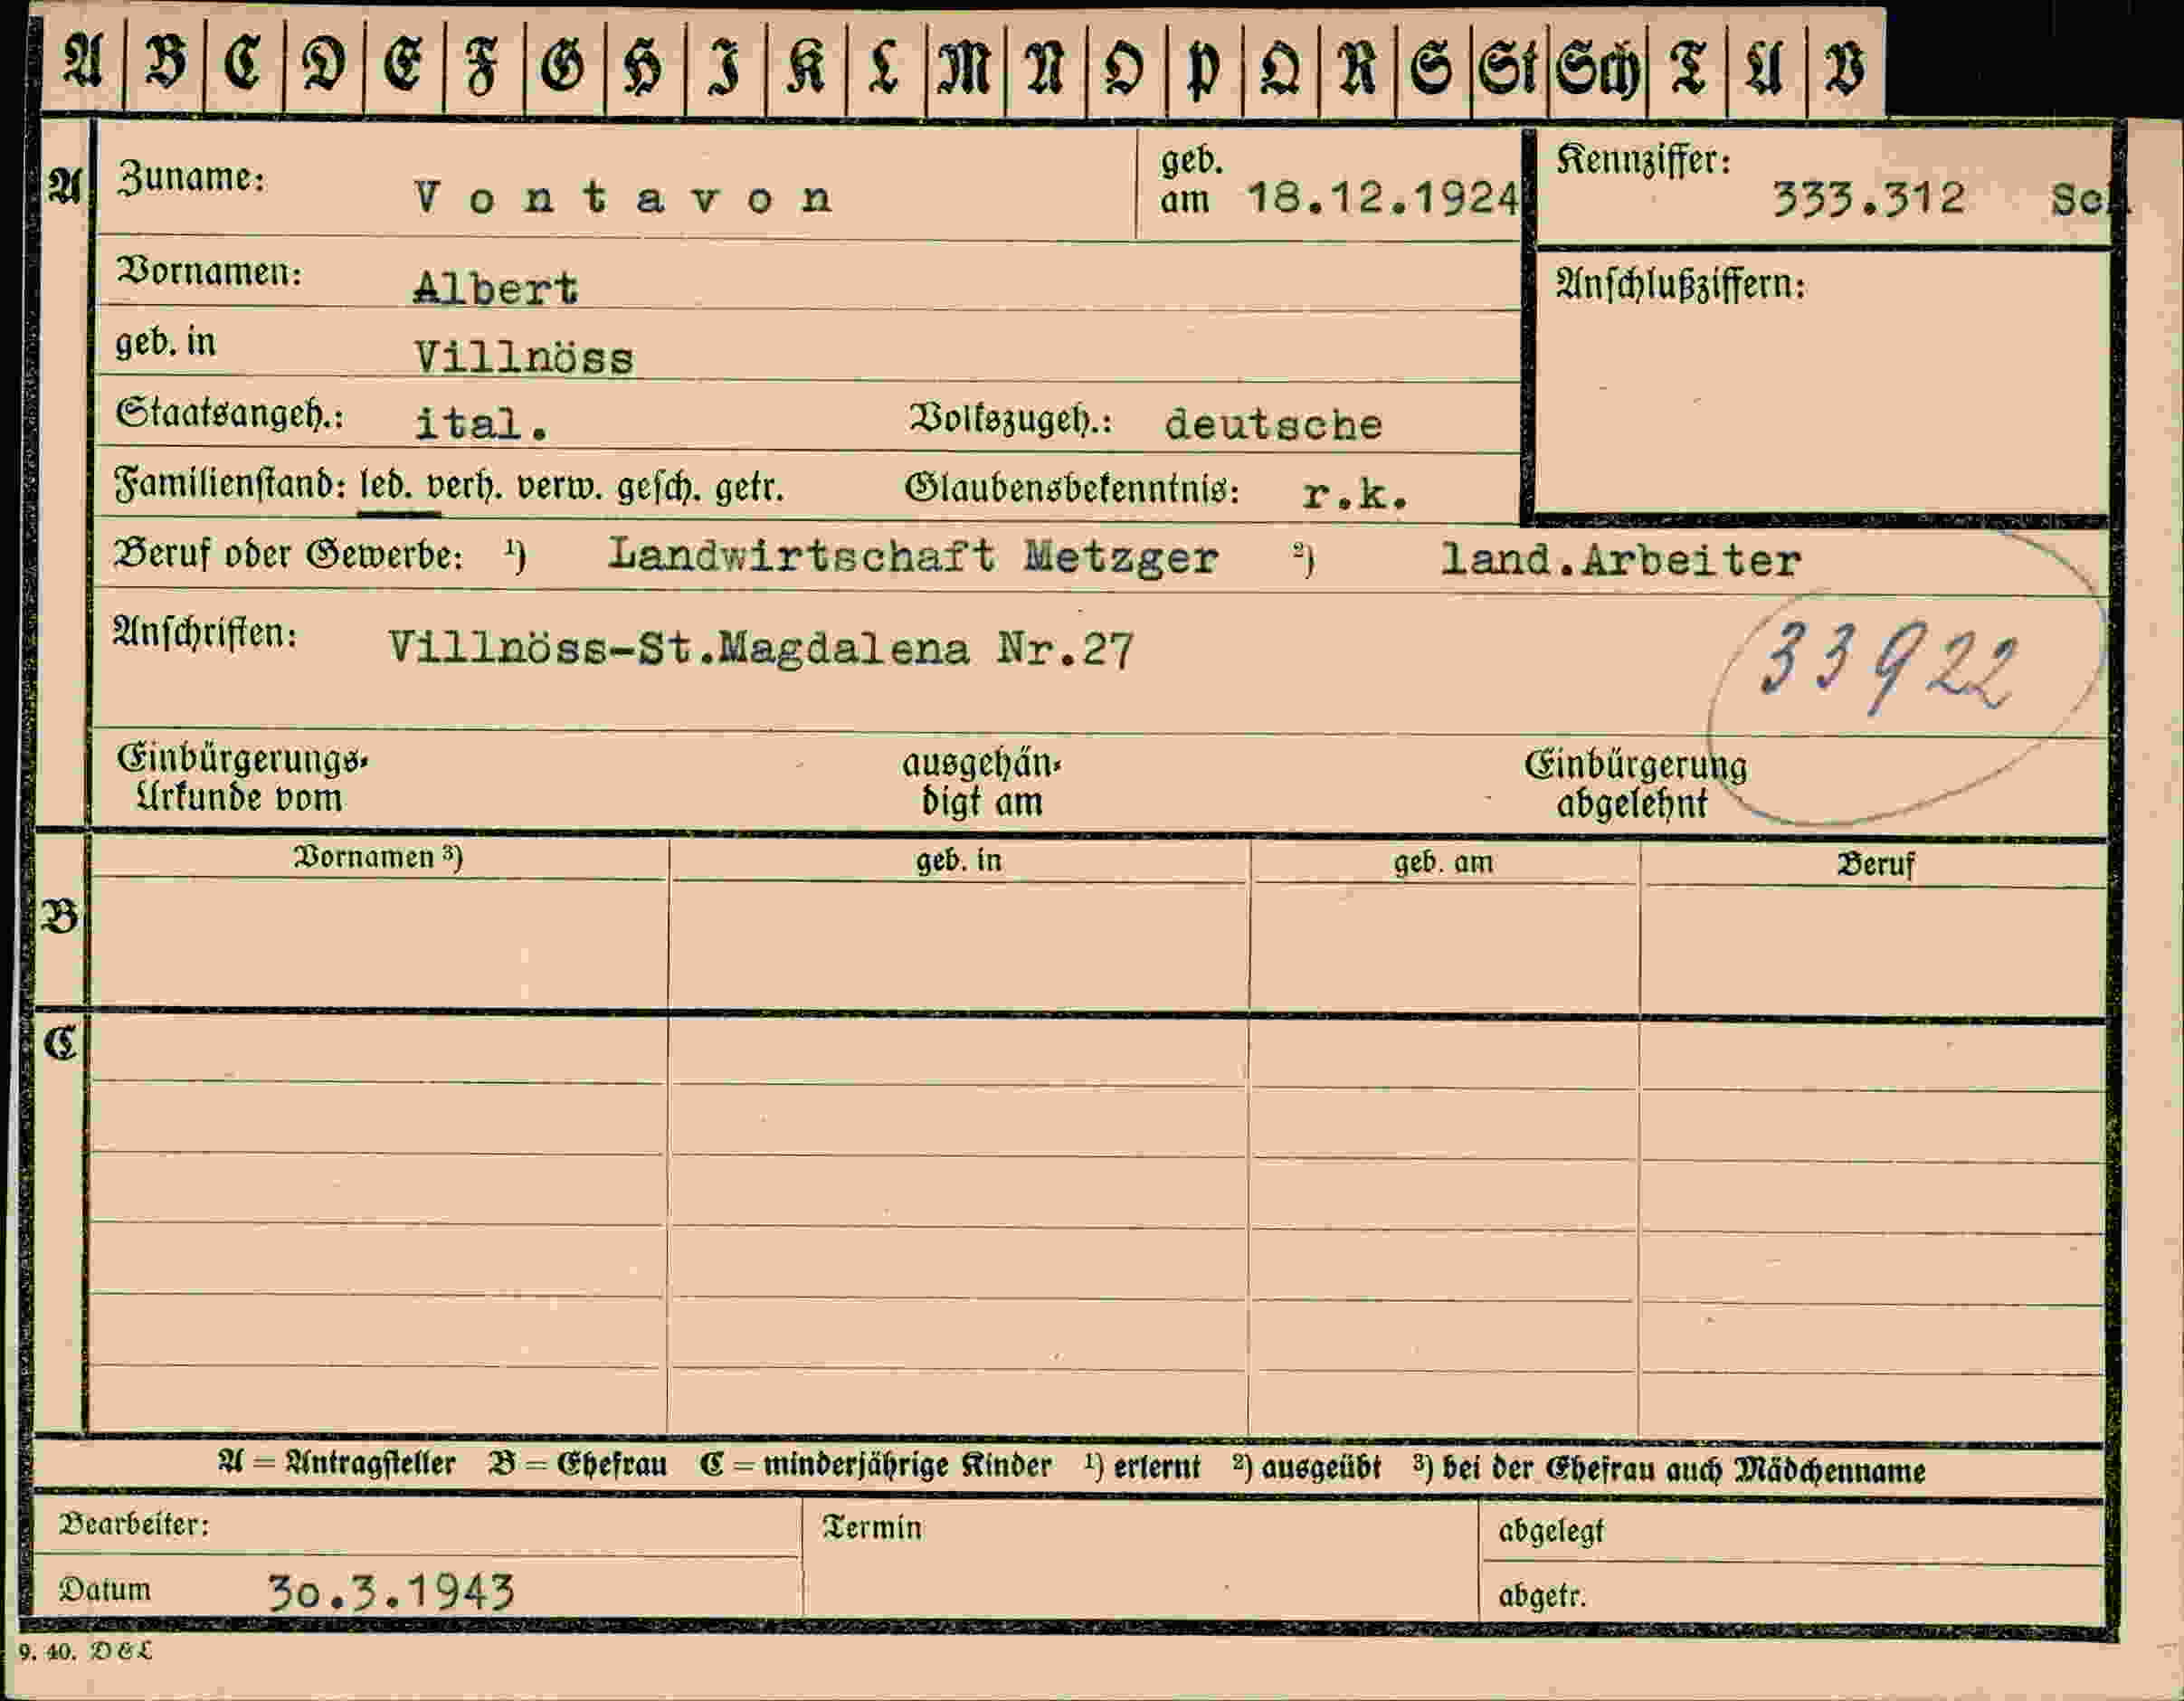 A B C D E F G H I K L M N O P Q R S St Sch T U V
A Zuname: Vontavon geb. am 18.12.1924 Kennziffer: 333.312 Sch
Vornamen: Albert Anschlußziffern:
geb. in Villnöss
Staatsangeh.: ital. Volkszugeh.: deutsche
Familienstand: led. verh. verw. gesch. getr. Glaubensbekenntnis: r.k.
Beruf oder Gewerbe: ¹) Landwirtschaft Metzger ²) land.Arbeiter
Anschriften: Villnöss-St.Magdalena Nr.27 33922
Einbürgerungs-
Urkunde vom
ausgehän-
digt am
Einbürgerung
abgelehnt
Vornamen ³) geb. in geb. am Beruf
B
C
A = Antragsteller B = Ehefrau C = minderjährige Kinder ¹) erlernt ²) ausgeübt ³) bei der Ehefrau auch Mädchenname
Bearbeiter: Termin abgelegt
Datum 30.3.1943 abgetr.
9. 40. D & L